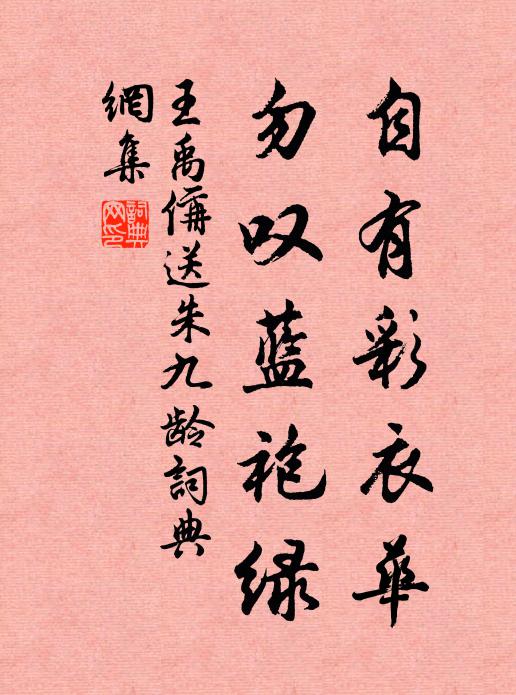 自有彩衣華
勿叹蓝袍绿
王禹偁送朱九龄詞典
網集
詞典網印